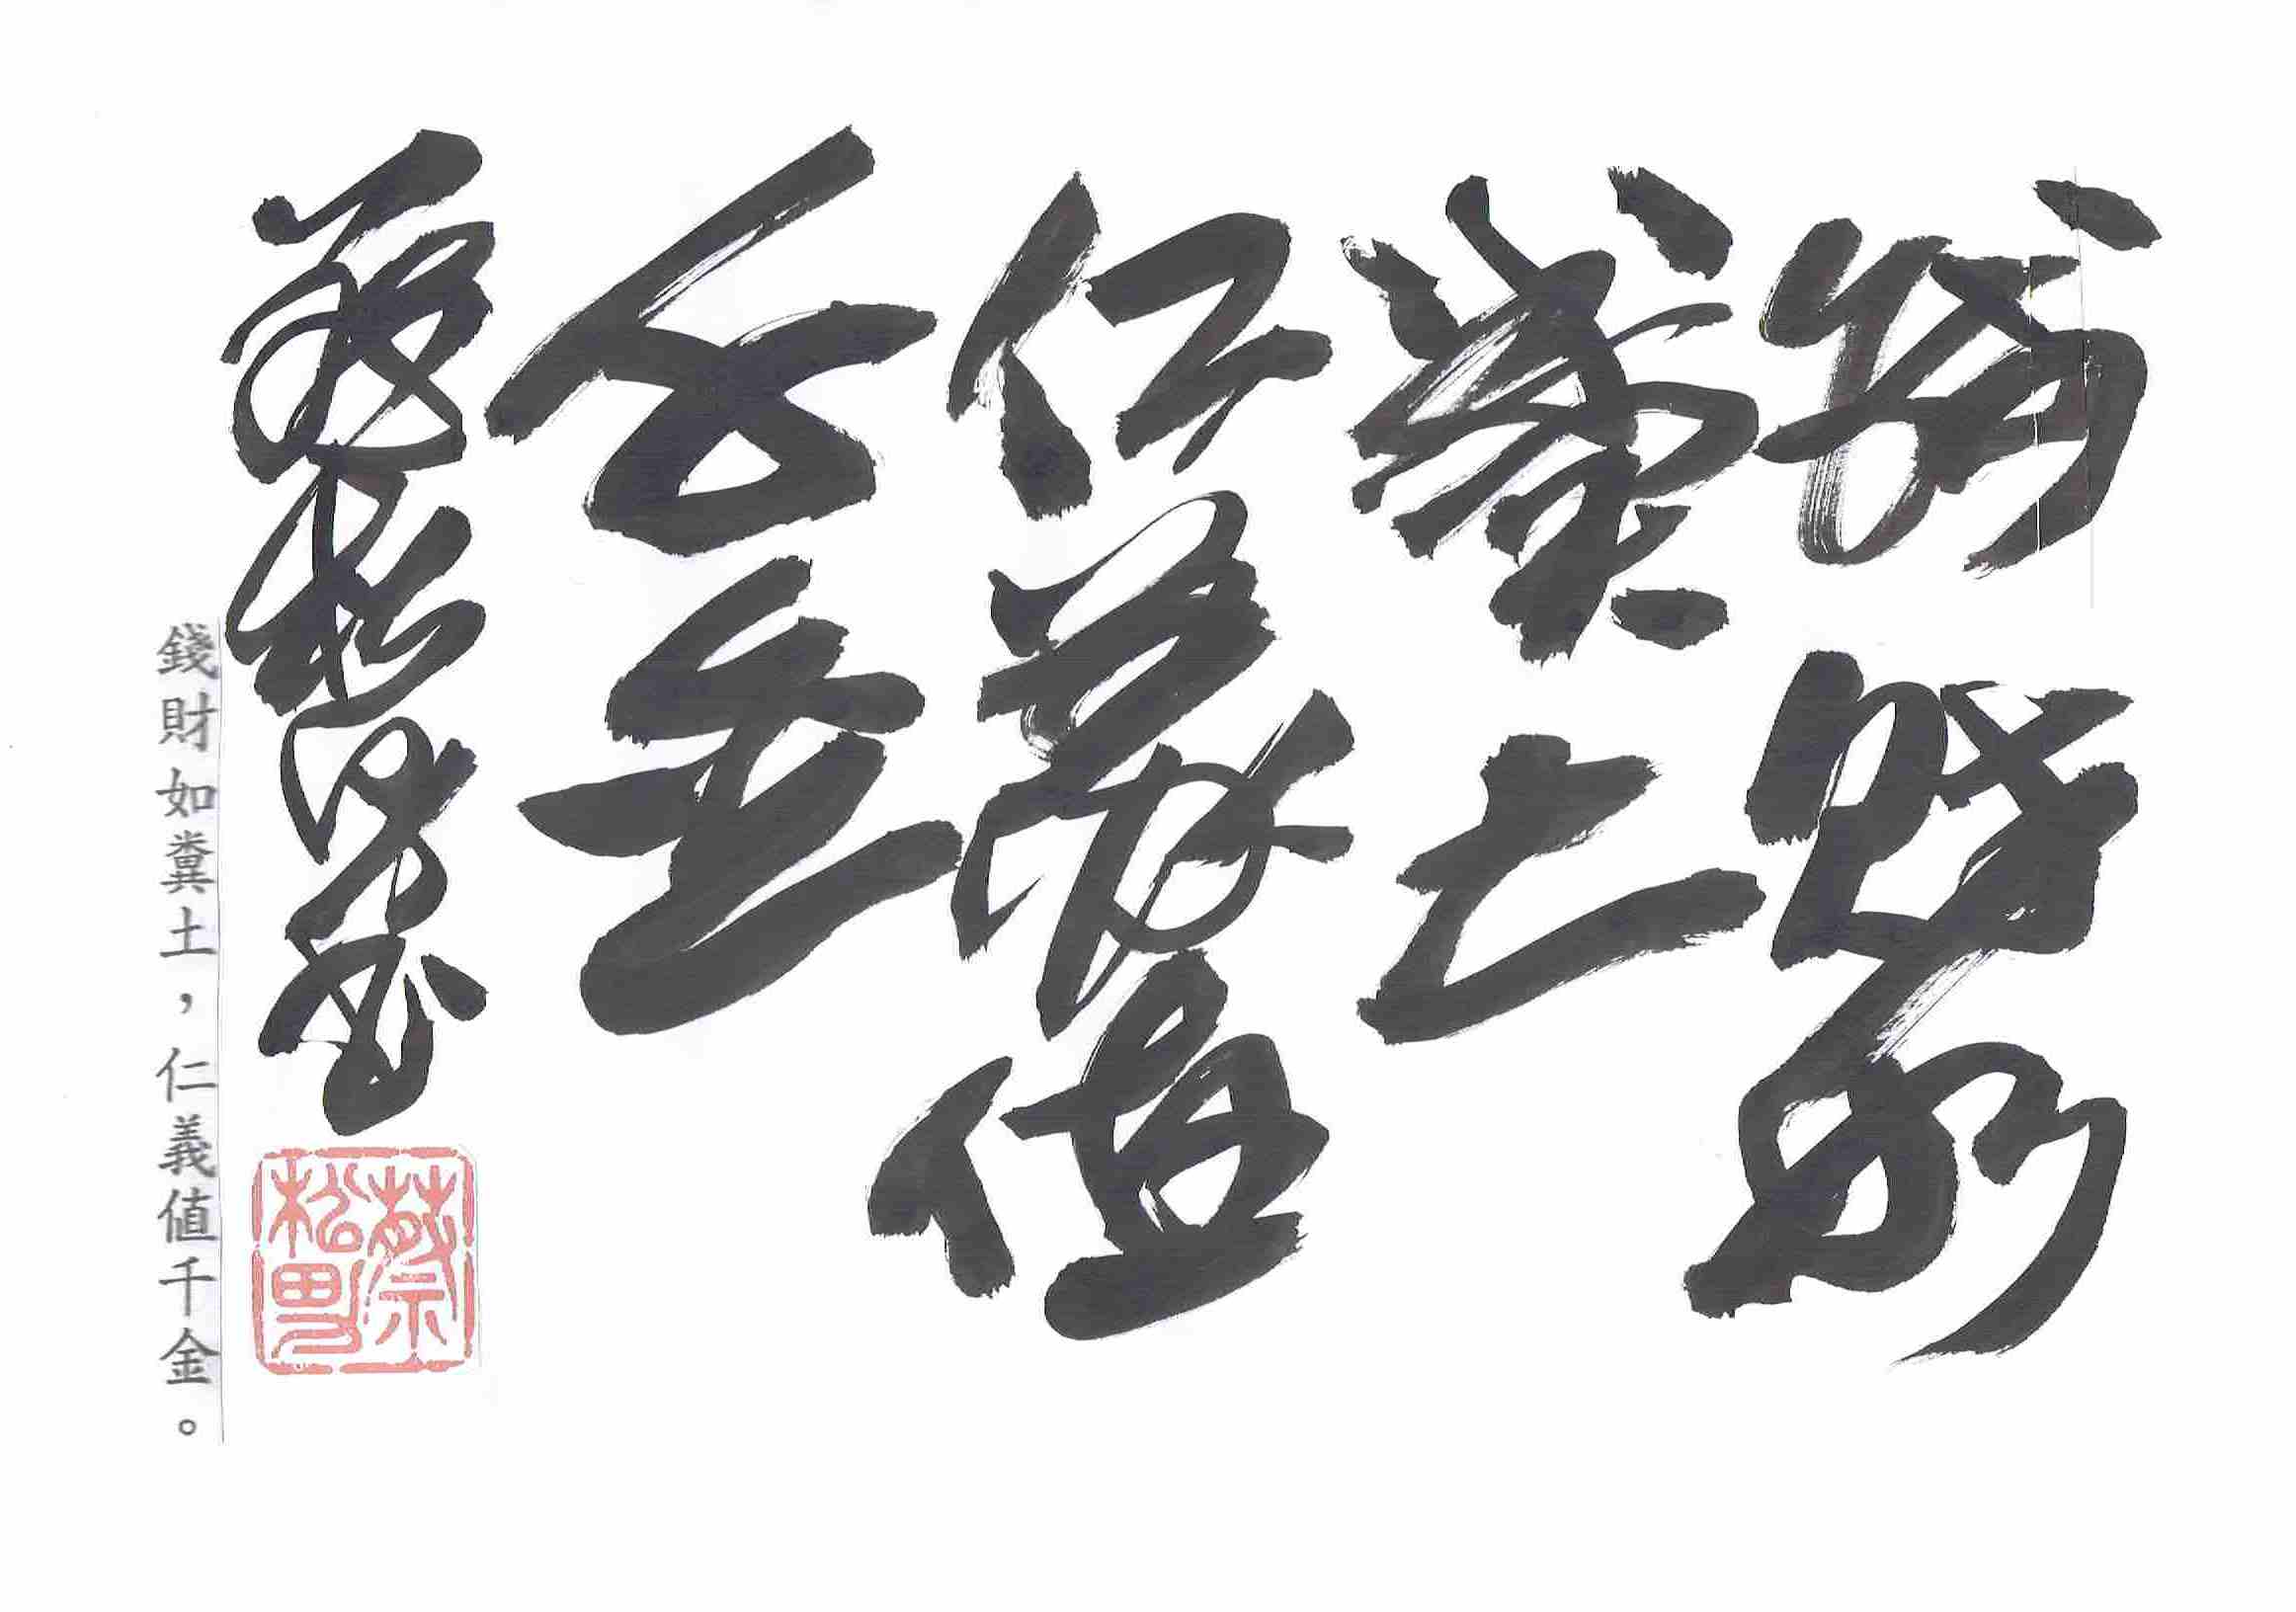 錢財如
糞土
仁義值
千金
蔡松男書
蔡松男
錢財如糞土，仁義值千金。